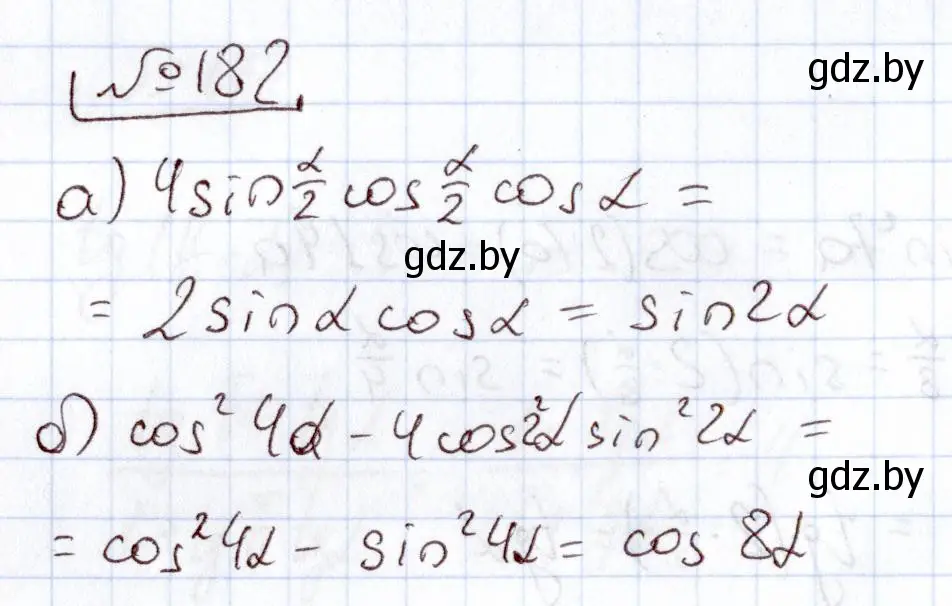 №182
gdz.by
а) 4 sin α/2 cos α/2 cos α =
gdz.by
= 2 sin α cos α = sin 2α
б) cos² 4α - 4 cos² 2α sin² 2α =
gdz.by
= cos² 4α - sin² 4α = cos 8α